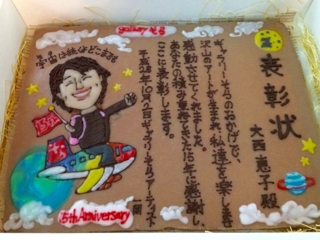 gallery そら
宇宙は続くよどこまでも
表彰状
大西恵子殿
ギャラリーそらのおかげで、
沢山のアートが生まれ、私達を楽しませ
感動させてくれました。
あなたの積み重ねてきた15年に感謝し、
ここに表彰します。
平成28年10月2日 ギャラリーそらアーティスト一同
15th Anniversary